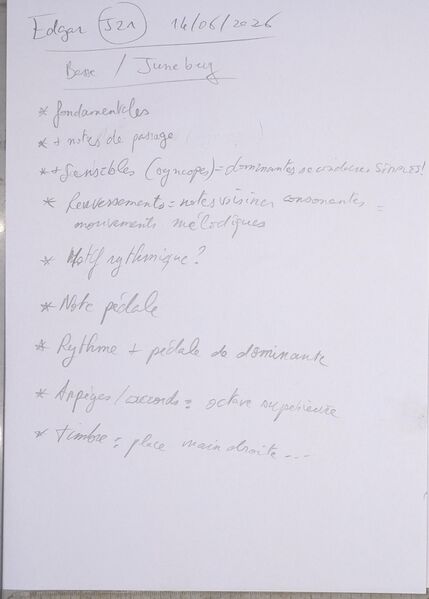 Edgar J21 14/06/2026
Basse / Junebug
* fondamentales
* + notes de passage
* + sensibles (syncopes) = dominantes secondaires SIMPLES!
* Renversements = notes voisines consonantes =
mouvements mélodiques
* Motif rythmique?
* Note pédale
* Rythme + pédale de dominante
* Arpèges/accords = octave supérieure
* timbre = place main droite ...